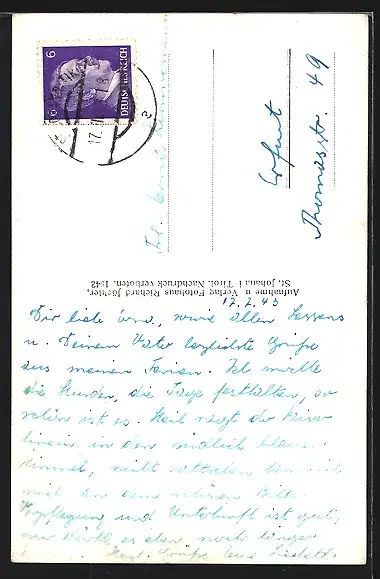 6
6
DEUTSCHES REICH
17.
Erfurt
Thomasstr. 49
Aufnahme u Verlag Fotohaus Richard Jöchler,
St. Johann i Tirol. Nachdruck verboten. 1942
17.2.43
Dir liebe sowie allen Lessers
u. Deinem Vater herzlichste Grüße
aus meinen Ferien. Ich möchte
die Stunden, die Tage festhalten, so
schön ist es. Steil ragt der Kaiser
hinein in den südlich blauen
Himmel, nicht
mich an dem schönen Bilde.
Verpflegung und Unterkunft ist gut,
nur dürfte es eben noch länger
Herzl. Grüße